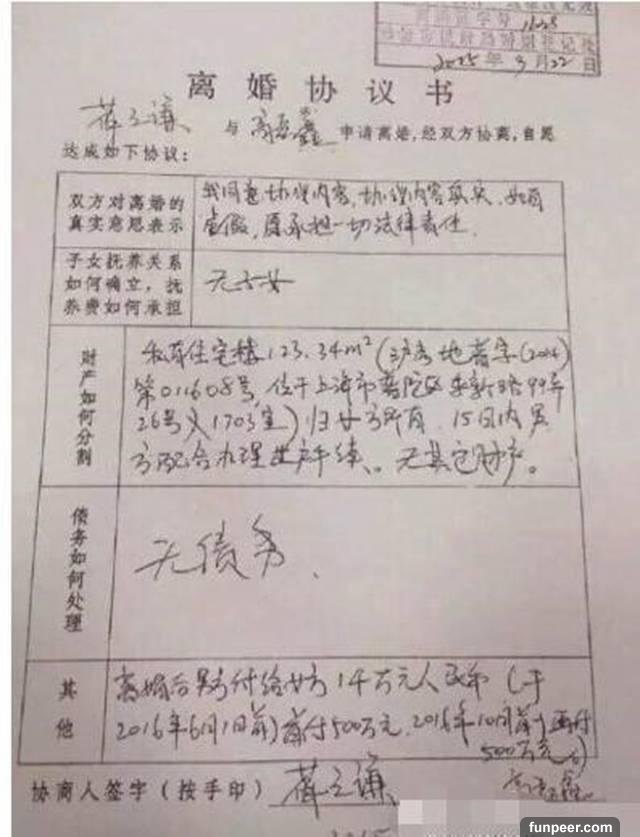 11025
2015年3月22日
离婚协议书
与 申请离婚,经双方协商,自愿
达成如下协议:
双方对离婚的
真实意思表示
我同意协议内容,协议内容真实,如有
虚假,愿承担一切法律责任.
子女抚养关系
如何确立,抚
养费如何承担
无子女
财产如何分割
私有住宅楼123.34m²(沪房地普字(2014)
第011608号,位于上海市普陀区 99弄
26号 1703室)归女方所有,15日内男
方配合办理过户手续。无其它财产。
债务如何处理
无债务.
其他
离婚后男方付给女方1千万元人民币(于
2016年6月1日前)首付500万元.2016年10月前再付
500万元
协商人签字(按手印)
funpeer.com